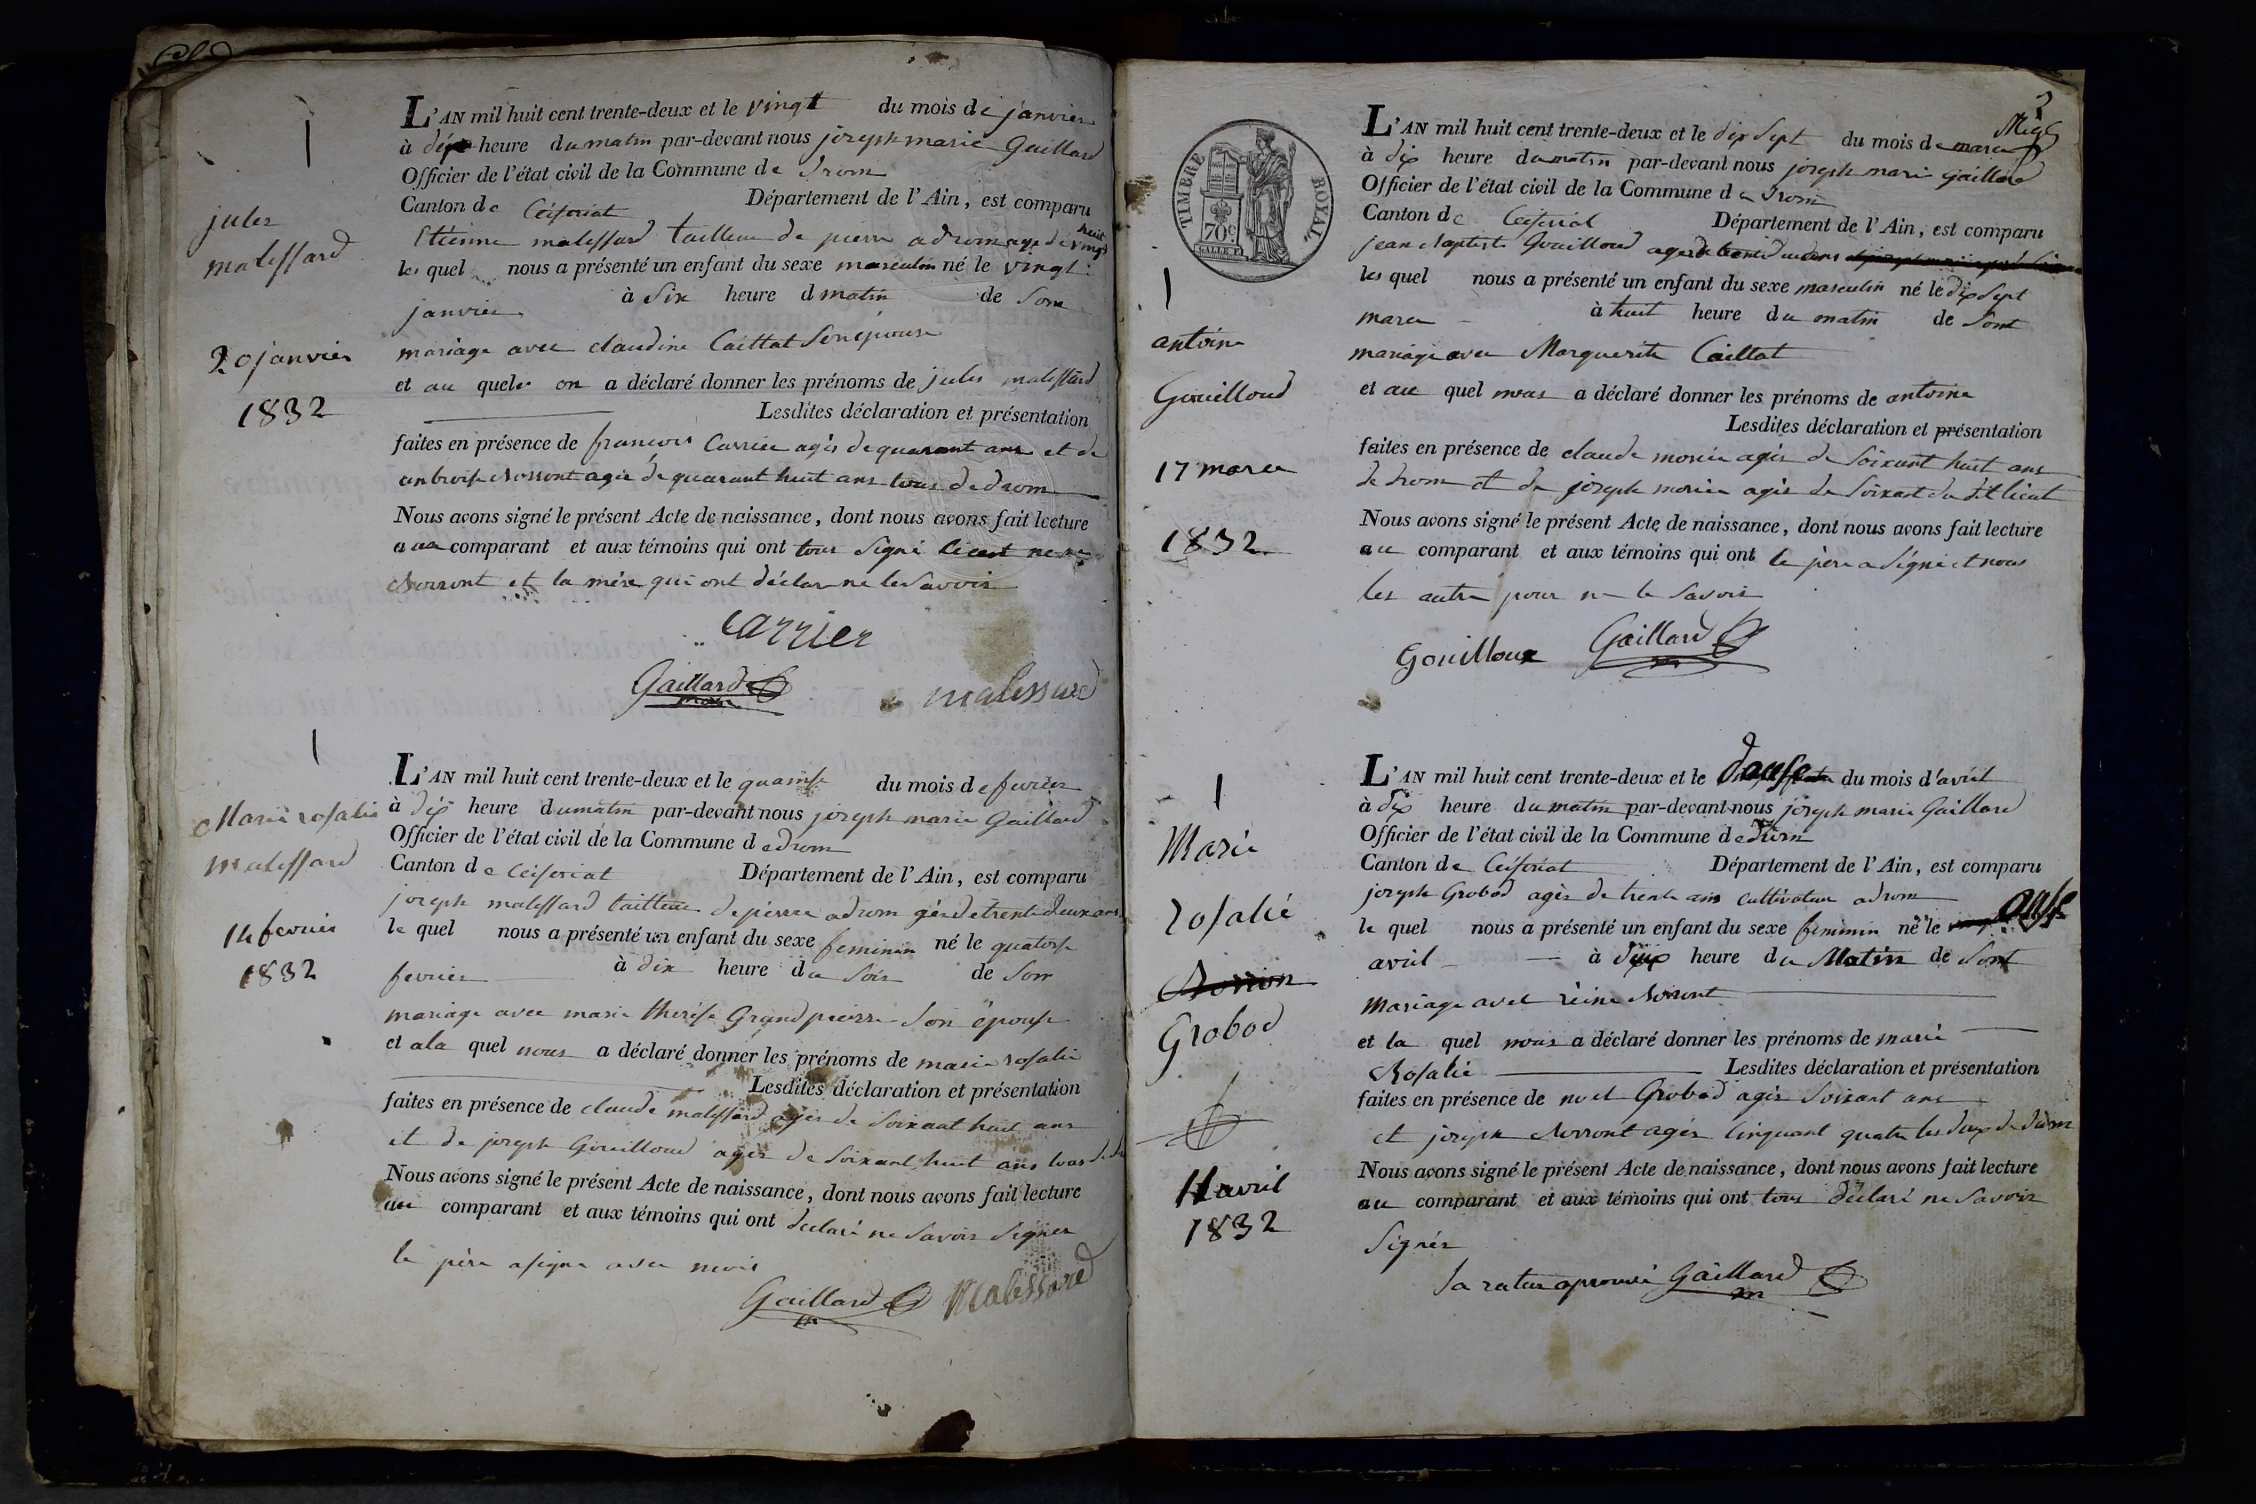 1
jules
malessard
20 janvier
1832
L'AN mil huit cent trente-deux et le vingt du mois de janvier
à dix heure du matin par-devant nous joseph marie Gaillard
Officier de l'état civil de la Commune de drom
Canton de Ceiseriat Département de l'Ain, est comparu
Etienne malessard tailleur de pierre a drom age de vingt huit
les quel nous a présenté un enfant du sexe masculin né le vingt
janvier à six heure d matin de son
mariage avec claudine Caillat son épouse
et au quel on a déclaré donner les prénoms de jules malessard
Lesdites déclaration et présentation
faites en présence de francois Carrier agés de quarant ans et de
anbroise Morront agée de quarant huit ans tous de drom
Nous avons signé le présent Acte de naissance, dont nous avons fait lecture
aux comparant et aux témoins qui ont tous signé
Morront et la mère qui ont déclar ne le savoir
carrier
Gaillard malessard
1
Marie rosalie
malessard
14 fevrier
1832
L'AN mil huit cent trente-deux et le quainse du mois de fevrier
à dix heure du matin par-devant nous joseph marie Gaillard
Officier de l'état civil de la Commune de drom
Canton de Ceiseriat Département de l'Ain, est comparu
joseph malessard tailleur de pierre a drom gés de trente deux ans
le quel nous a présenté un enfant du sexe feminin né le quatorse
fevrier à dix heure du soir de son
mariage avec marie therèse Grandpierre son épouse
et a la quel nous a déclaré donner les prénoms de marie rosalie
Lesdites déclaration et présentation
faites en présence de claude malessard agés de soixant huit ans
et de joseph Gouilloud agés de soixant huit ans tous de
Nous avons signé le présent Acte de naissance, dont nous avons fait lecture
au comparant et aux témoins qui ont declaré ne savoir signer
le père a signe avec moi
Gaillard Malessard
3
TIMBRE ROYAL
70c
1
antoine
Gouilloud
17 mars
1832
L'AN mil huit cent trente-deux et le dix sept du mois de mars
à dix heure du matin par-devant nous joseph marie gaillard
Officier de l'état civil de la Commune de drom
Canton de Ceiseriat Département de l'Ain, est comparu
jean baptiste Gouilloud ages de trente deux ans
les quel nous a présenté un enfant du sexe masculin né le dix sept
mars à huit heure du matin de sont
mariage avec Marguerite Caillat
et au quel nous a déclaré donner les prénoms de antoine
Lesdites déclaration et présentation
faites en présence de claude morier agés de soixant huit ans
de drom et de joseph morier agés de soixant du dit lieut
Nous avons signé le présent Acte de naissance, dont nous avons fait lecture
au comparant et aux témoins qui ont le père a signé et nous
les autre pour ne le savoir
Gouilloux Gaillard
1
Marie
rosalie
Grobod
11 avril
1832
L'AN mil huit cent trente-deux et le douse du mois d'avril
à dix heure du matin par-devant nous joseph marie Gaillard
Officier de l'état civil de la Commune de drom
Canton de Ceiseriat Département de l'Ain, est comparu
joseph Grobod agés de trente ans cultivateur a drom
le quel nous a présenté un enfant du sexe feminin né le onse
avril à dix heure du Matin de sont
mariage avec reine Morront
et la quel nous a déclaré donner les prénoms de marie
Rosalie Lesdites déclaration et présentation
faites en présence de noel Grobod agés soixant ans
et joseph Morront agés cinquant quatre les deux de drom
Nous avons signé le présent Acte de naissance, dont nous avons fait lecture
au comparant et aux témoins qui ont tous déclaré ne savoir
signér
la ratur aprouvée Gaillard